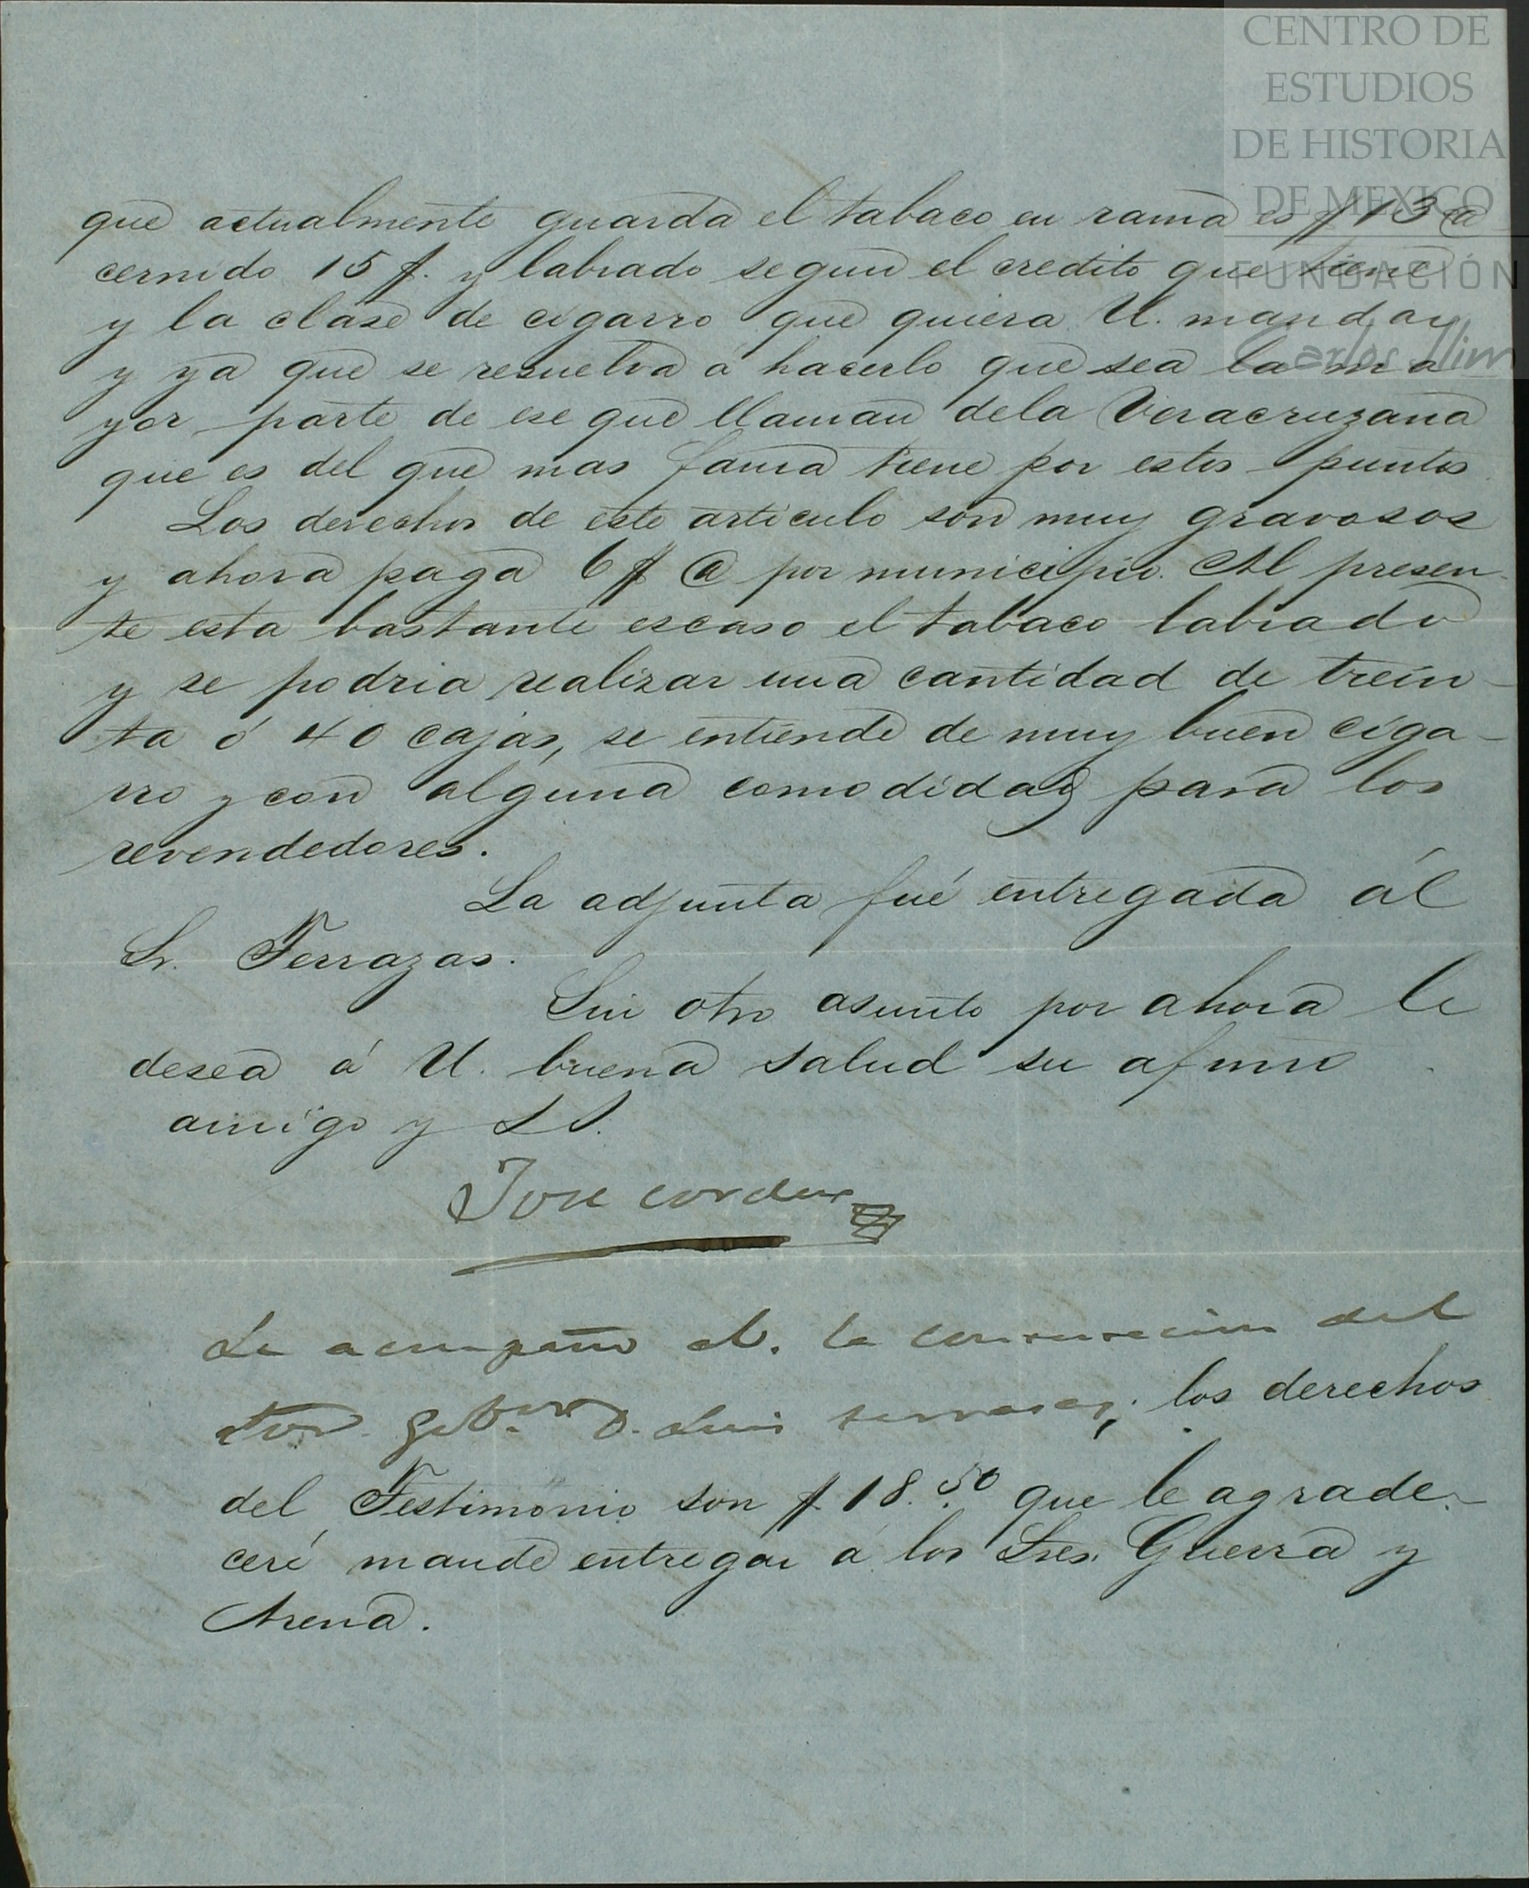 CENTRO DE
ESTUDIOS
DE HISTORIA
DE MEXICO
FUNDACIÓN
Carlos Slim
que actualmente guarda el tabaco en rama es $13 @
cernido 15 $. y labrado segun el credito que tiene
y la clase de cigarro que quiera U. mandar
y ya que se resuelva á hacerlo que sea la ma
yor parte de ese que llaman dela Veracruzana
que es del que mas fama tiene por estos puntos.
Los derechos de este articulo son muy gravosos
y ahora paga 6 $ @ por municipio. Al presen-
te esta bastante escaso el tabaco labrado
y se podria realizar una cantidad de trein-
ta ó 40 cajas, se entiende de muy buen ciga-
rro y con alguna comodidad para los
revendedores.
La adjunta fué entregada ál
Sr. Terrazas.
Sin otro asunto por ahora le
desea á U. buena salud su afmo
amigo y S S.
Jose cordero
Le acompaño á U. la del
Sor. Gobor. D. Luis terrazas; los derechos
del Testimonio son $ 18.50 que le agrade-
ceré mande entregar á los Sres. Guerra y
Arena.